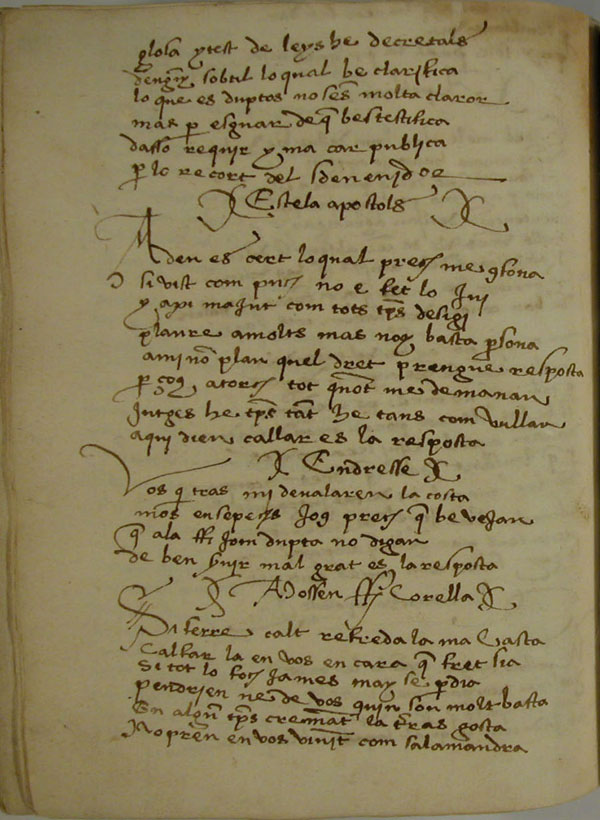 glosa y test de leys he decretals
d'engin sobtil lo qual be clarifica
lo que es duptos no sens molta claror
mas per esguar de que bes testifica
dasso requir y ma car publica
per lo recort del
Estela apostols
A den es cert lo qual prech me
si vist com puch no e fet lo
y api majut com tots temps desigi
plaure a molts mas noy basta persona
a mi no plau quel dret prengue resposta
per çoy atorch tot quant me demanan
Jutges he tests tant he tans com vullan
aqui dien callar es la resposta
Endresse
Vos qui tras mi devalaren la costa
mos en Joy prech que be vejan
que a la ffi Jom dupta no digan
de ben suir mal grat es la resposta
A Mossen ffi Corella
Si ferre calt refreda la ma casta
Calfar la en vos encara que fret sia
Si tot lo foch james may se perdia
pendrien ne de vos quin sou molt basta
En algun temps cremant la tras gosta
No pren en vos vivint com salamandra